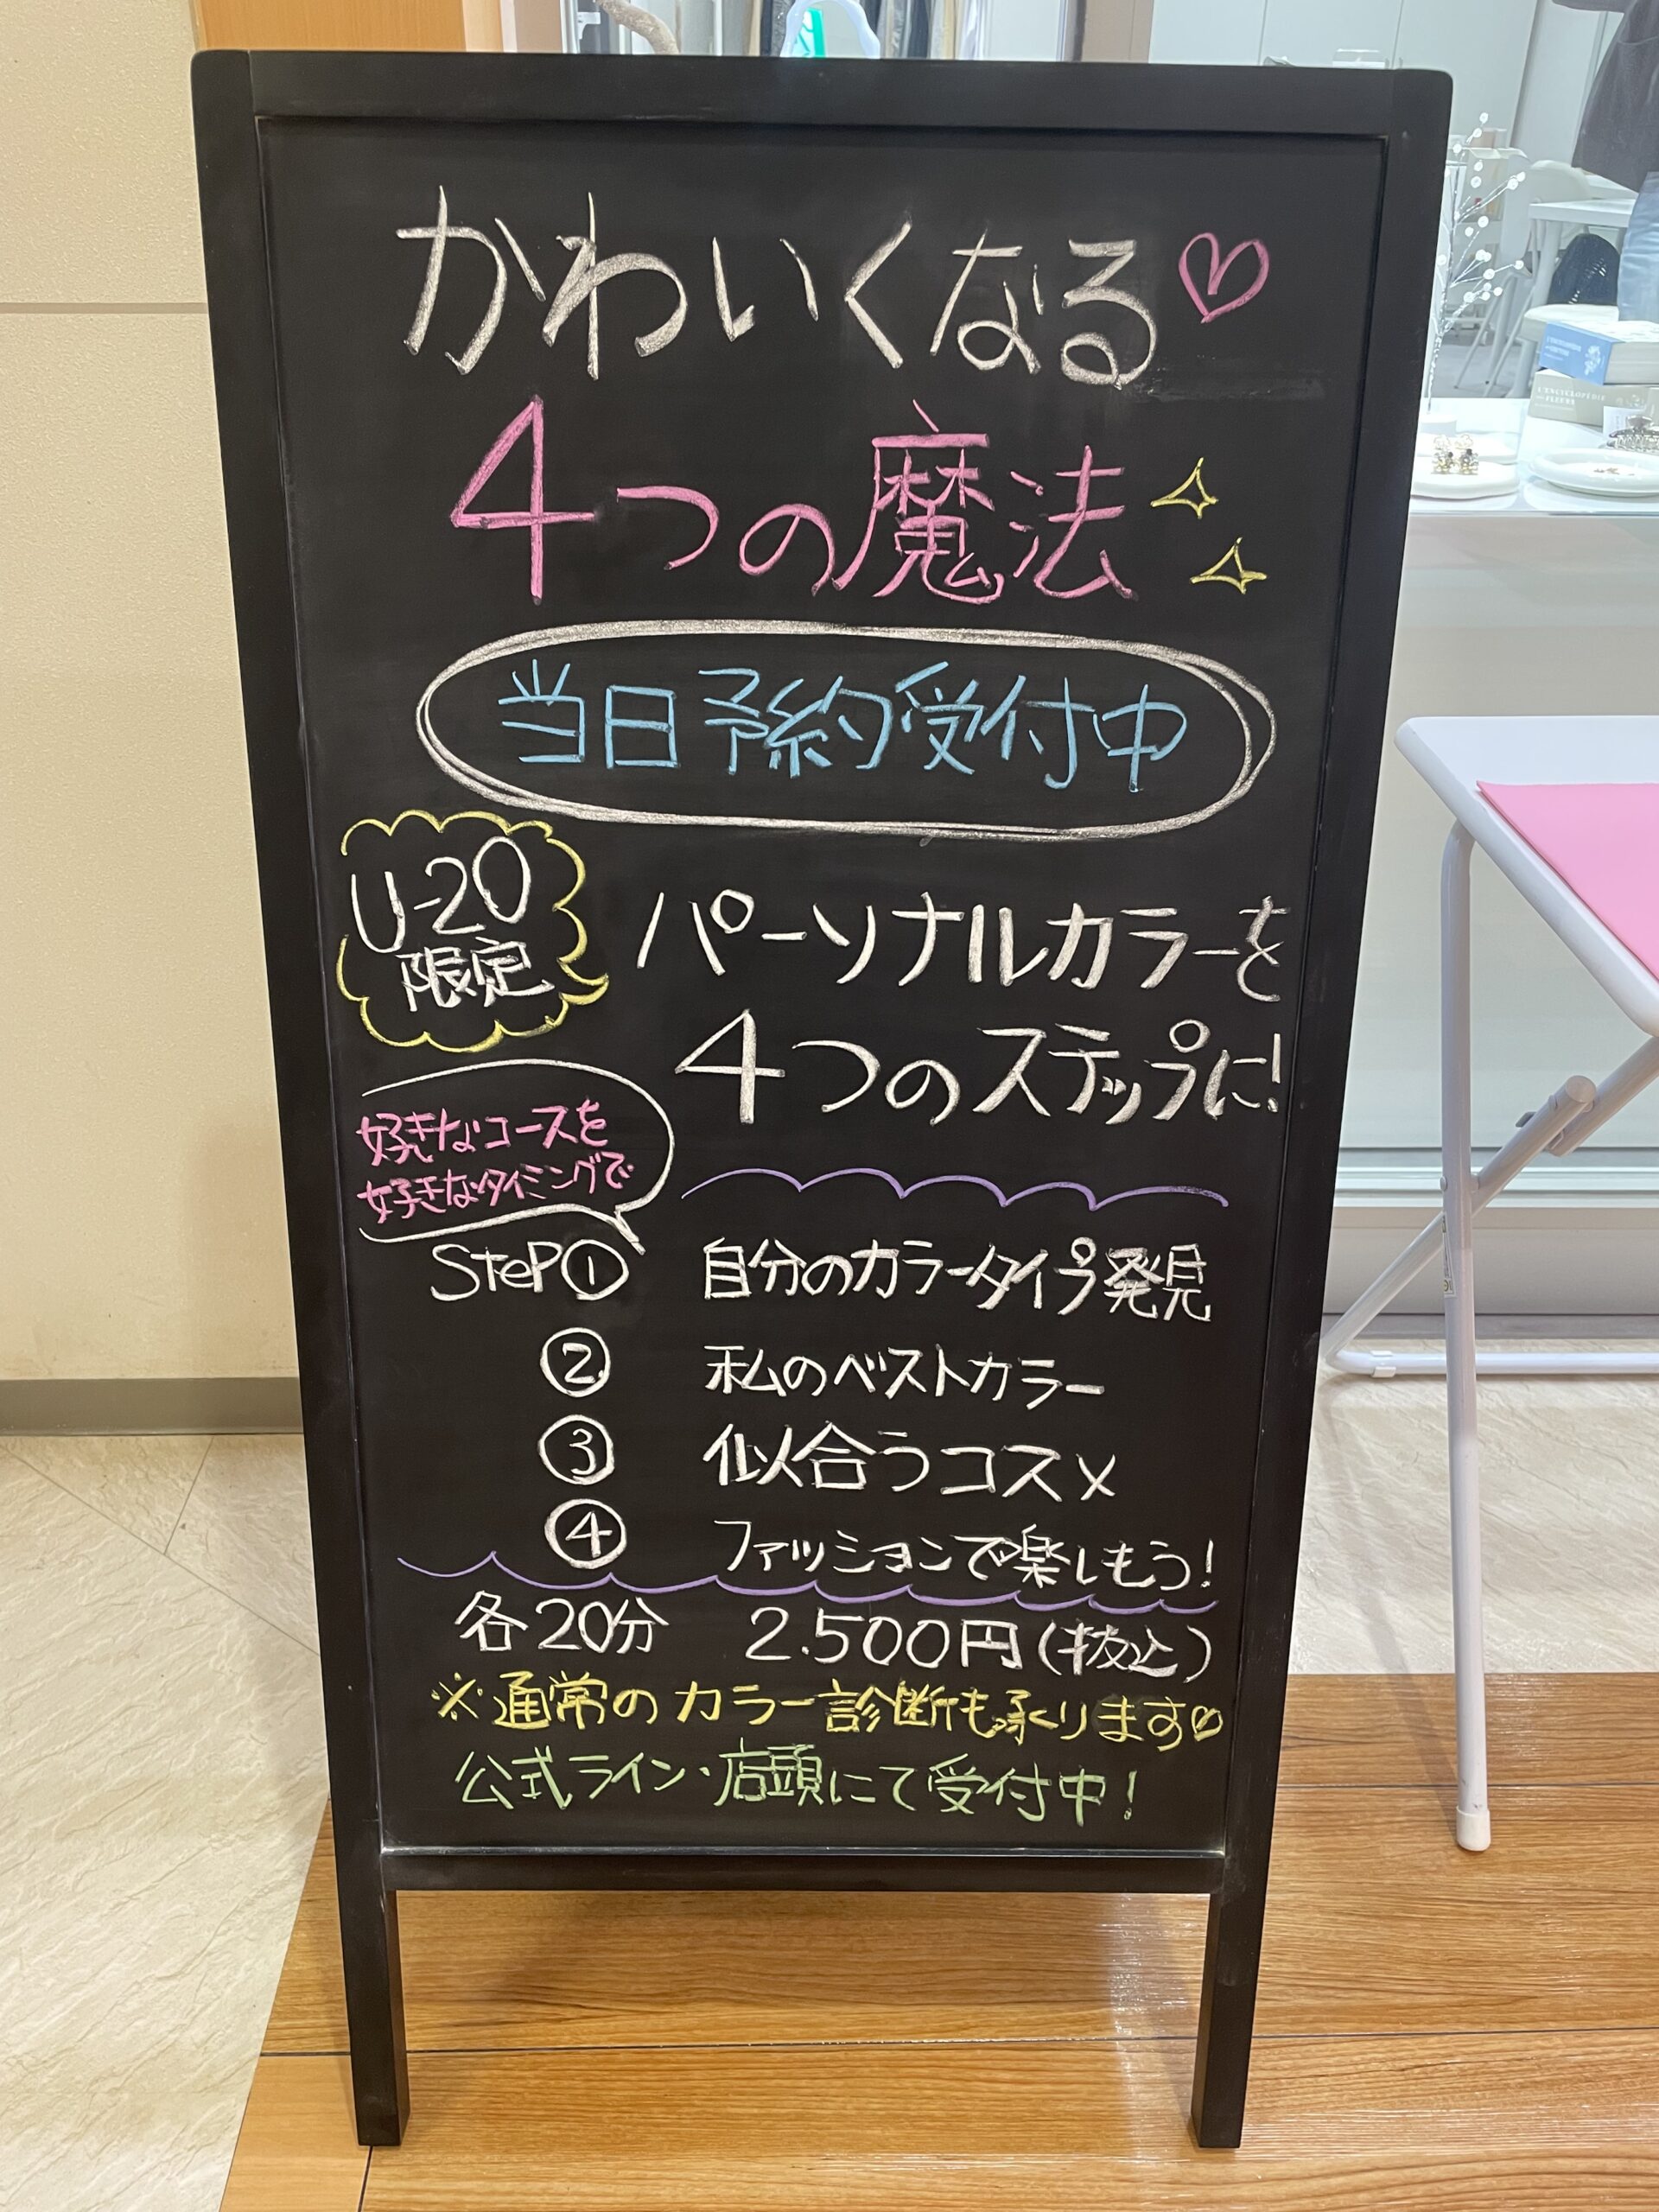 かわいくなる♡
4つの魔法
当日予約受付中
U-20
限定
パーソナルカラーを
4つのステップに!
好きなコースを
好きなタイミングで
SteP① 自分のカラータイプ発見
② 私のベストカラー
③ 似合うコスメ
④ ファッションで楽しもう!
各20分 2.500円(抜込)
※通常のカラー診断も承ります♡
公式ライン・店頭にて受付中!